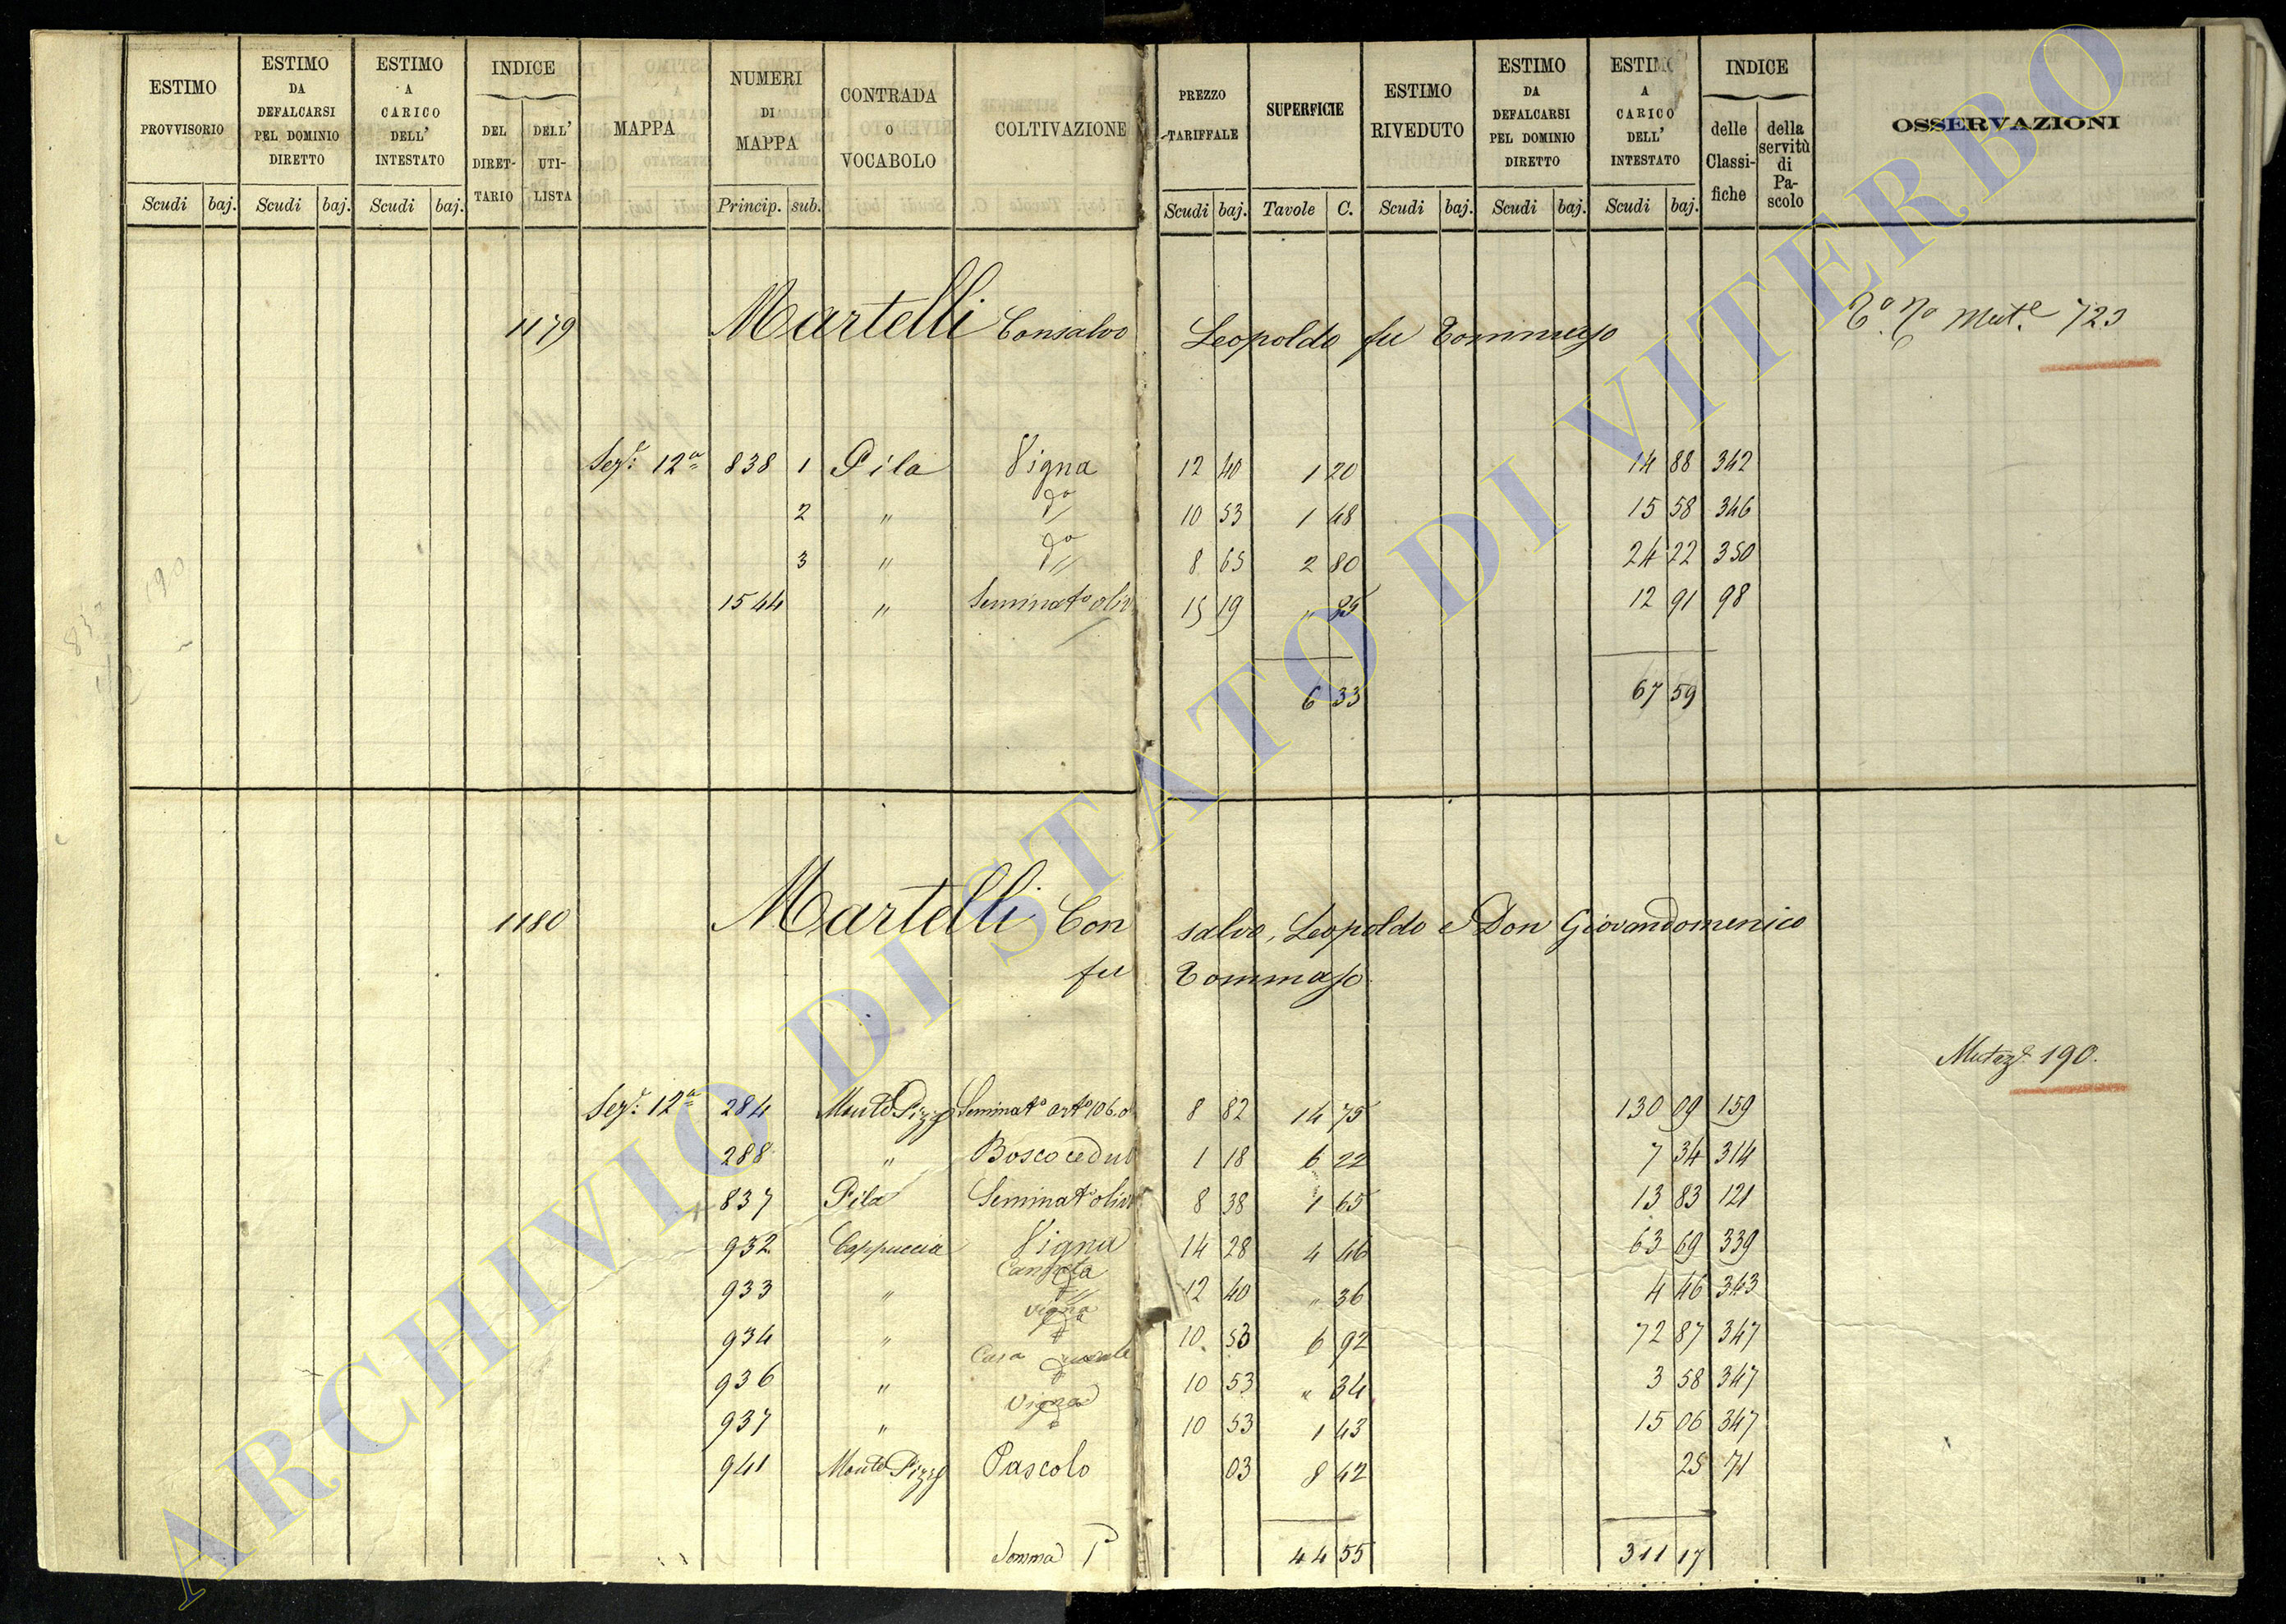 ESTIMO PROVVISORIO
ESTIMO DA DEFALCARSI PEL DOMINIO DIRETTO
ESTIMO A CARICO DELL' INTESTATO
INDICE
DEL DIRET-TARIO
DELL' UTI-LISTA
MAPPA
NUMERI DI MAPPA
CONTRADA O VOCABOLO
COLTIVAZIONE
PREZZO TARIFFALE
SUPERFICIE
ESTIMO RIVEDUTO
ESTIMO DA DEFALCARSI PEL DOMINIO DIRETTO
ESTIMO A CARICO DELL' INTESTATO
INDICE
delle Classi-fiche
della servitù di Pa-scolo
OSSERVAZIONI
Scudi baj. Scudi baj. Scudi baj. Princip. sub. Scudi baj. Tavole C. Scudi baj. Scudi baj. Scudi baj.
1179 Martelli Consalvo Leopoldo fu Tommaso
723
Sez: 12a 838 1 Pila Vigna 12 40 1 20 14 88 342
2 " do 10 53 1 48 15 58 346
3 " do 8 65 2 80 24 22 350
1544 " Seminato oliv 15 19 " 85 12 91 98
6 33 67 59
1180 Martelli Con salvo, Leopoldo e Don Giovandomenico
fu Tommaso
Mutaz. 190.
Sez: 12a 284 Monte Pizzo Seminato 8 82 14 75 130 09 159
288 " Bosco cedu 1 18 6 22 7 34 314
837 Pila Seminato oliv 8 38 1 65 13 83 121
932 Cappuccia Vigna 14 28 4 46 63 69 339
933 " 12 40 " 36 4 46 343
934 " Vigna 10 53 6 92 72 87 347
936 " Casa 10 53 " 34 3 58 347
937 " Vigna 10 53 1 43 15 06 347
941 Monte Pizzo Pascolo 03 8 42 25 71
Somma 44 55 311 17
ARCHIVIO DI STATO DI VITERBO